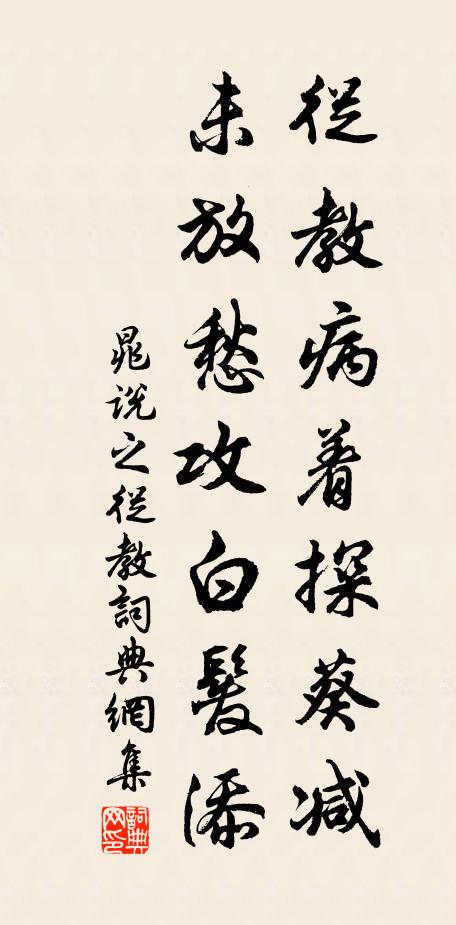 從教病着探葵减
未放愁攻白髮添
晁説之從教詞典網集
詞典網印